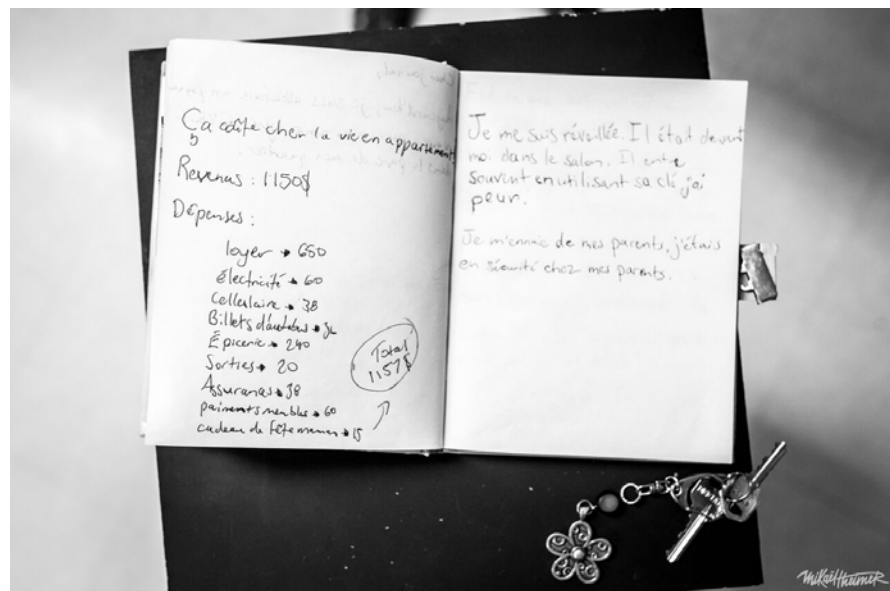 Ça coûte cher la vie en appartement
Revenus : 1150$
Dépenses :
loyer → 650
électricité → 60
Cellulaire → 38
Billets d'autobus →
Épicerie → 240
Sorties → 20
Assurances → 38
paiments meubles → 60
cadeau de fête maman → 15
Total
1157$
Je me suis réveillée. Il était devant
moi dans le salon. Il entre
souvent en utilisant sa clé, j'ai
peur.
Je m'ennuie de mes parents, j'étais
en sécurité chez mes parents.
Mikaël Theimer